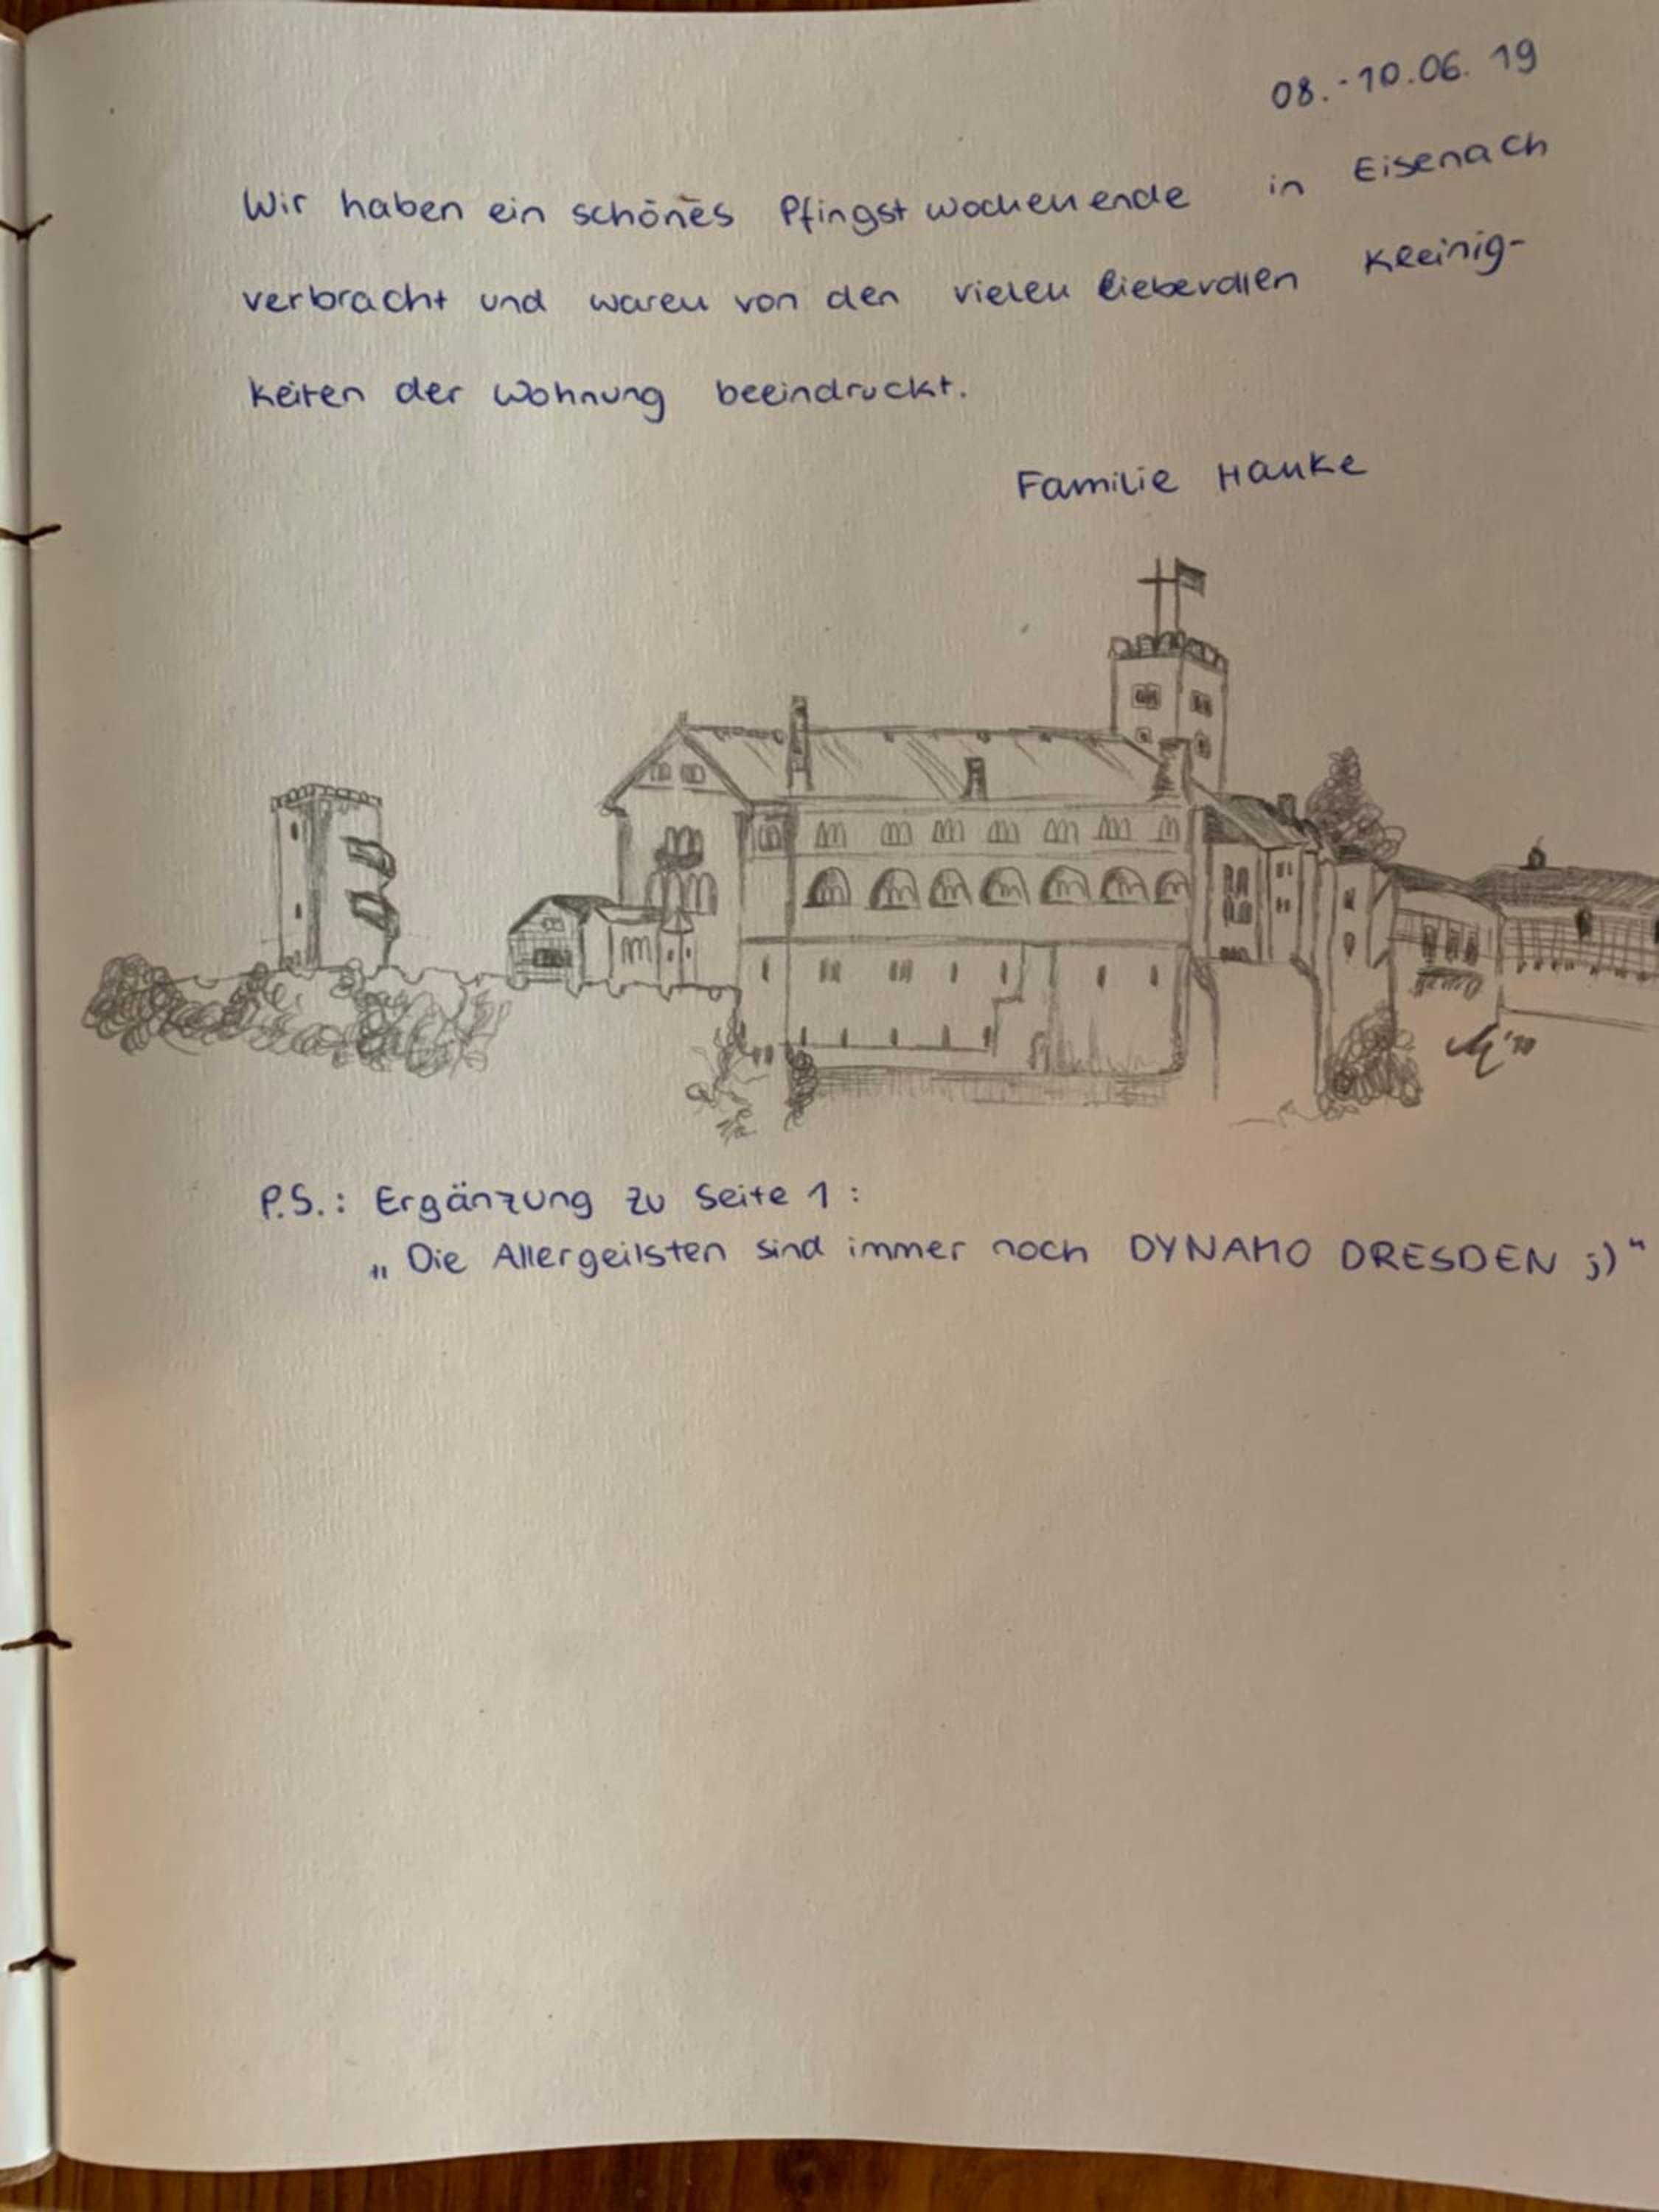 08.-10.06.19
Wir haben ein schönes Pfingstwochenende in Eisenach
verbracht und waren von den vielen liebevollen Kleinig-
keiten der Wohnung beeindruckt.
Familie Hanke
P.S.: Ergänzung zu Seite 1:
„Die Allergeilsten sind immer noch DYNAMO DRESDEN ;)"